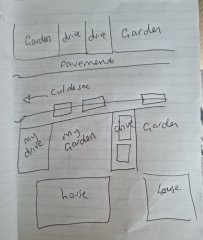 Garden drive drive Garden
pavement
cul de sac
my drive
my Garden
drive
Garden
house
house